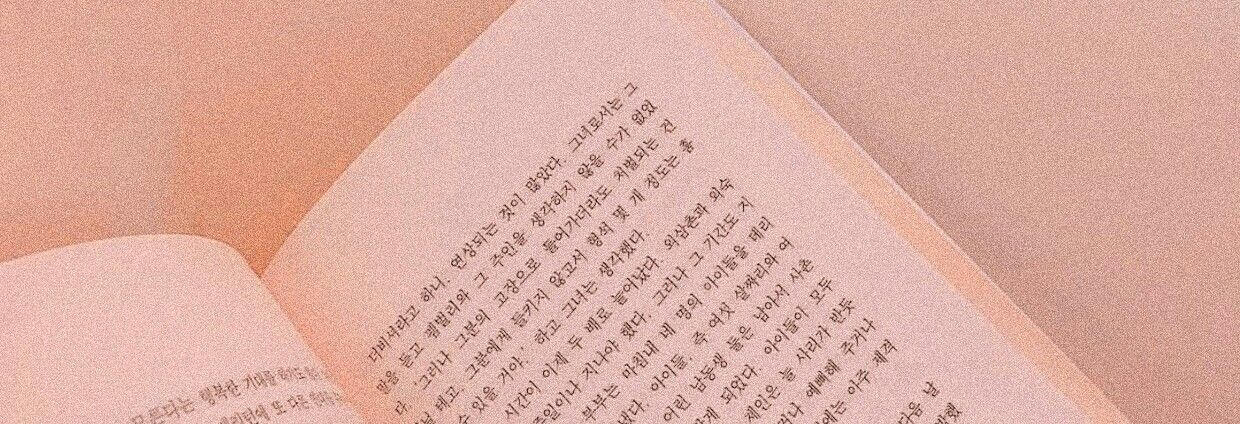 모른다는 행복한 기대를
또 다른
더비셔라고 하니. 연상되는 것이 많았다. 그녀로서는 그
말을 듣고 펨벌리와 그 주인을 생각하지 않을 수가 없었
다. '그러나 그분의 고장으로 들어가더라도 처벌되는 건
테고. 그분에게 들키지 않고서 형석 몇 개 정도는 훔
수 있을 거야.' 하고 그녀는 생각했다.
시간이 이제 두 배로 늘어났다. 외삼촌과 외숙
주일이나 지나야 했다. 그러나 그 기간도 지
부부는 마침내 네 명의 아이들을 데리
났다. 아이들, 즉 여섯 살짜리와 여
어린 남동생 둘은 남아서 사촌
맡게 되었다. 아이들이 모두
제인은 늘 사리가 반듯
거나 예뻐해 주거나
에는 아주 제격
다음 날